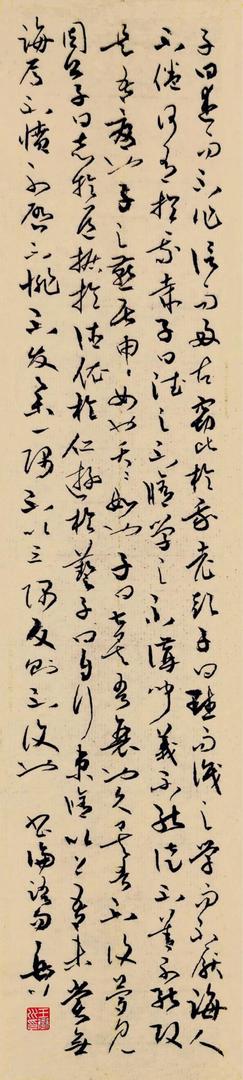 子曰述而不作信而好古窃比於我老彭子曰默而識之学而不厭誨人
不倦何有於我哉子曰德之不脩学之不講聞義不能徙不善不能改
是吾憂也子之燕居申〻如也夭〻如也子曰甚矣吾衰也久矣吾不復夢見
周公子曰志於道據於德依於仁遊於藝子曰自行束脩以上吾未嘗無
誨焉不憤不啓不悱不发舉一隅不以三隅反則不復也
书論語句